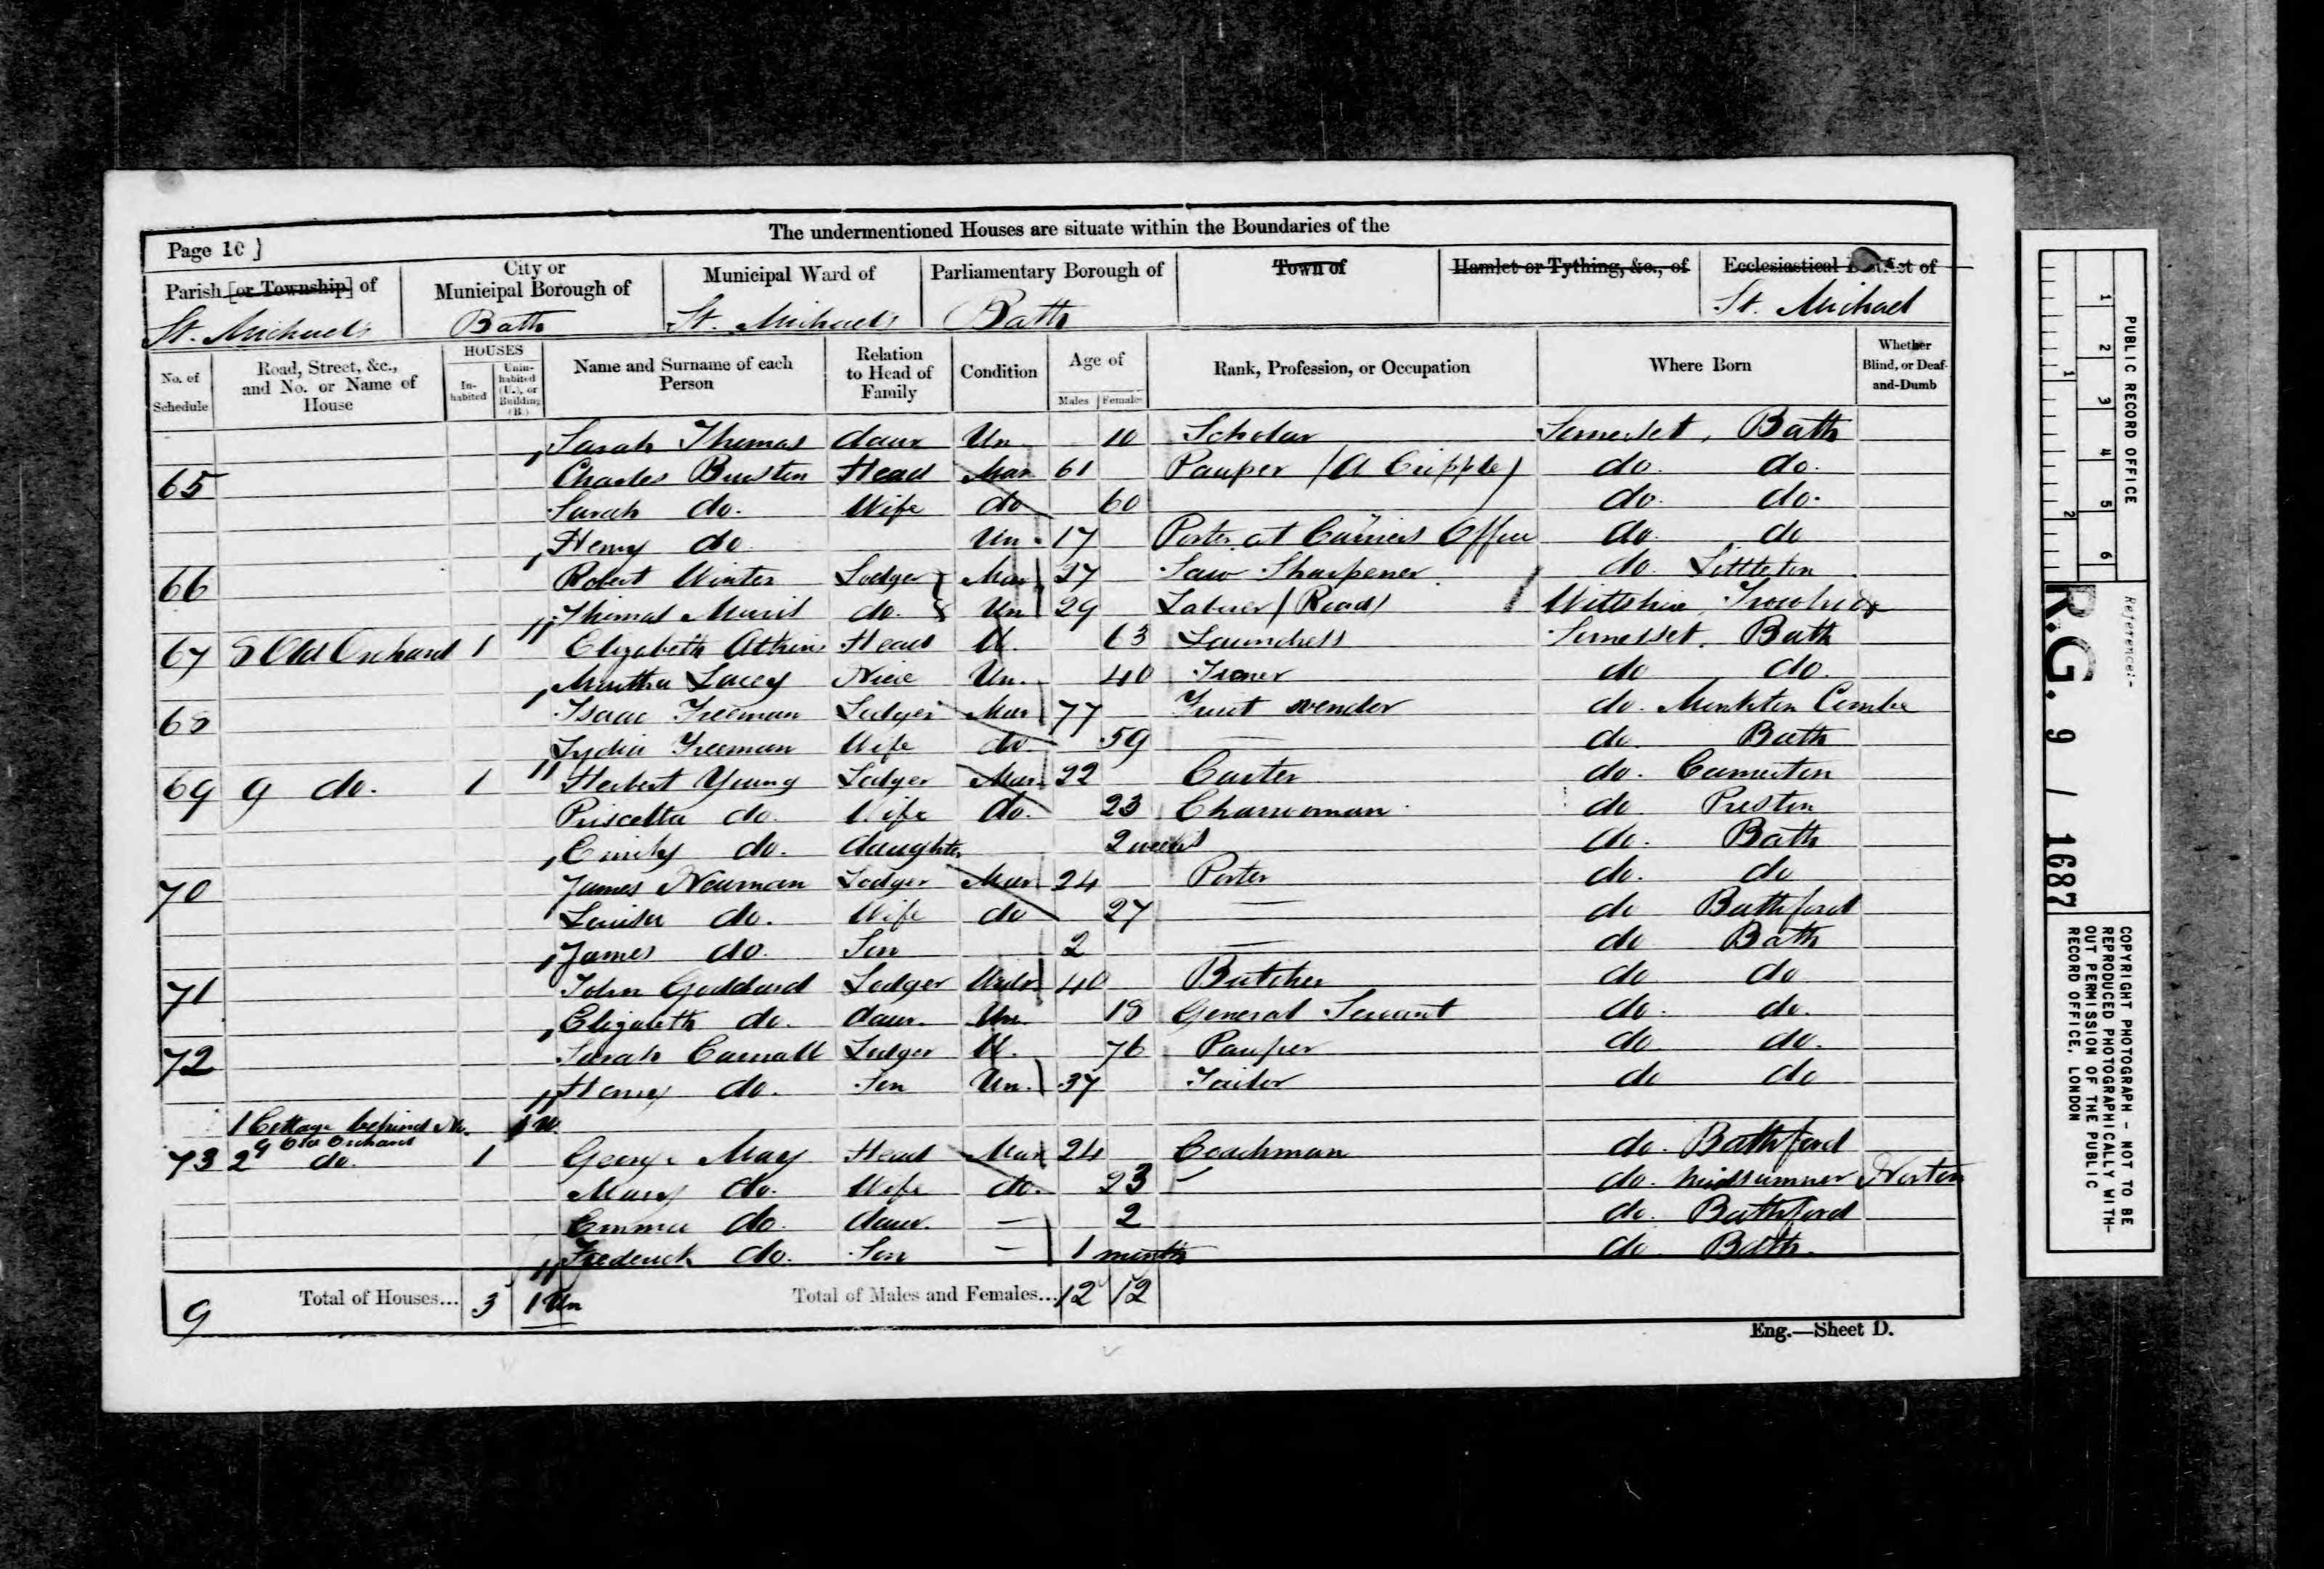 The undermentioned Houses are situate within the Boundaries of the
Page 10 ]
Parish [or Township] of City or Municipal Borough of Municipal Ward of Parliamentary Borough of Town of Hamlet or Tything, &c., of Ecclesiastical District of
St. Michaels Bath St. Michaels Bath St. Michael
No. of Schedule Road, Street, &c., and No. or Name of House HOUSES Inhabited Uninhabited (U.), or Building (B.) Name and Surname of each Person Relation to Head of Family Condition Age of Males Females Rank, Profession, or Occupation Where Born Whether Blind, or Deaf-and-Dumb
Sarah Thomas daur Un 10 Scholar Somerset, Bath
65 Charles Head Mar 61 Pauper (A Cripple) do. do.
Sarah do. Wife do 60 do. do.
Henry do Un 17 Porter at Carriers Office do do
66 Robert Winter Lodger Mar 37 Saw Sharpener do. Littleton
Thomas do. Un 29 Laborer (Road) Wiltshire,
67 8 Old Orchard 1 Elizabeth Atkins Head W. 63 Laundress Somerset, Bath
Martha Lacey Niece Un. 40 Ironer do do.
68 Isaac Freeman Lodger Mar 77 Fruit vender do. Monkton Combe
Lydia Freeman Wife do 59 — do. Bath
69 9 do. 1 Herbert Young Lodger Mar 22 Carter do. Camerton
Priscella do. Wife do. 23 Charwoman do Preston
Emily do. daughter 2 weeks do. Bath
70 James Newman Lodger Mar 24 Porter do. do
Louisa do. Wife do 27 — do Bathford
James do. Son 2 — do Bath
71 John Goddard Lodger Widr 40 Butcher do do
Elizabeth do. daur. Un. 18 General Servant do. do.
72 Sarah Lodger W. 76 Pauper do do.
Henry do. Son Un. 37 Tailor do do
1 Cottage behind No. 9 Old Orchard 1 U
73 2 do. 1 George May Head Mar 24 Coachman do. Bathford
Mary do. Wife do. 23 – do. midsummer Norton
Emma do. daur. — 2 do. Bathford
Frederick do. Son — 1 month do Bath.
9 Total of Houses... 3 1 Un Total of Males and Females... 12 12
Eng.—Sheet D.
PUBLIC RECORD OFFICE
1 2 3 4 5 6
1 2
Reference:-
R.G. 9 / 1687
COPYRIGHT PHOTOGRAPH - NOT TO BE
REPRODUCED PHOTOGRAPHICALLY WITH-
OUT PERMISSION OF THE PUBLIC
RECORD OFFICE, LONDON